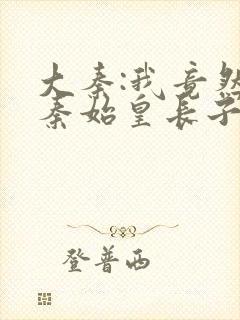 大秦:我竟然
秦始皇长子
登普西